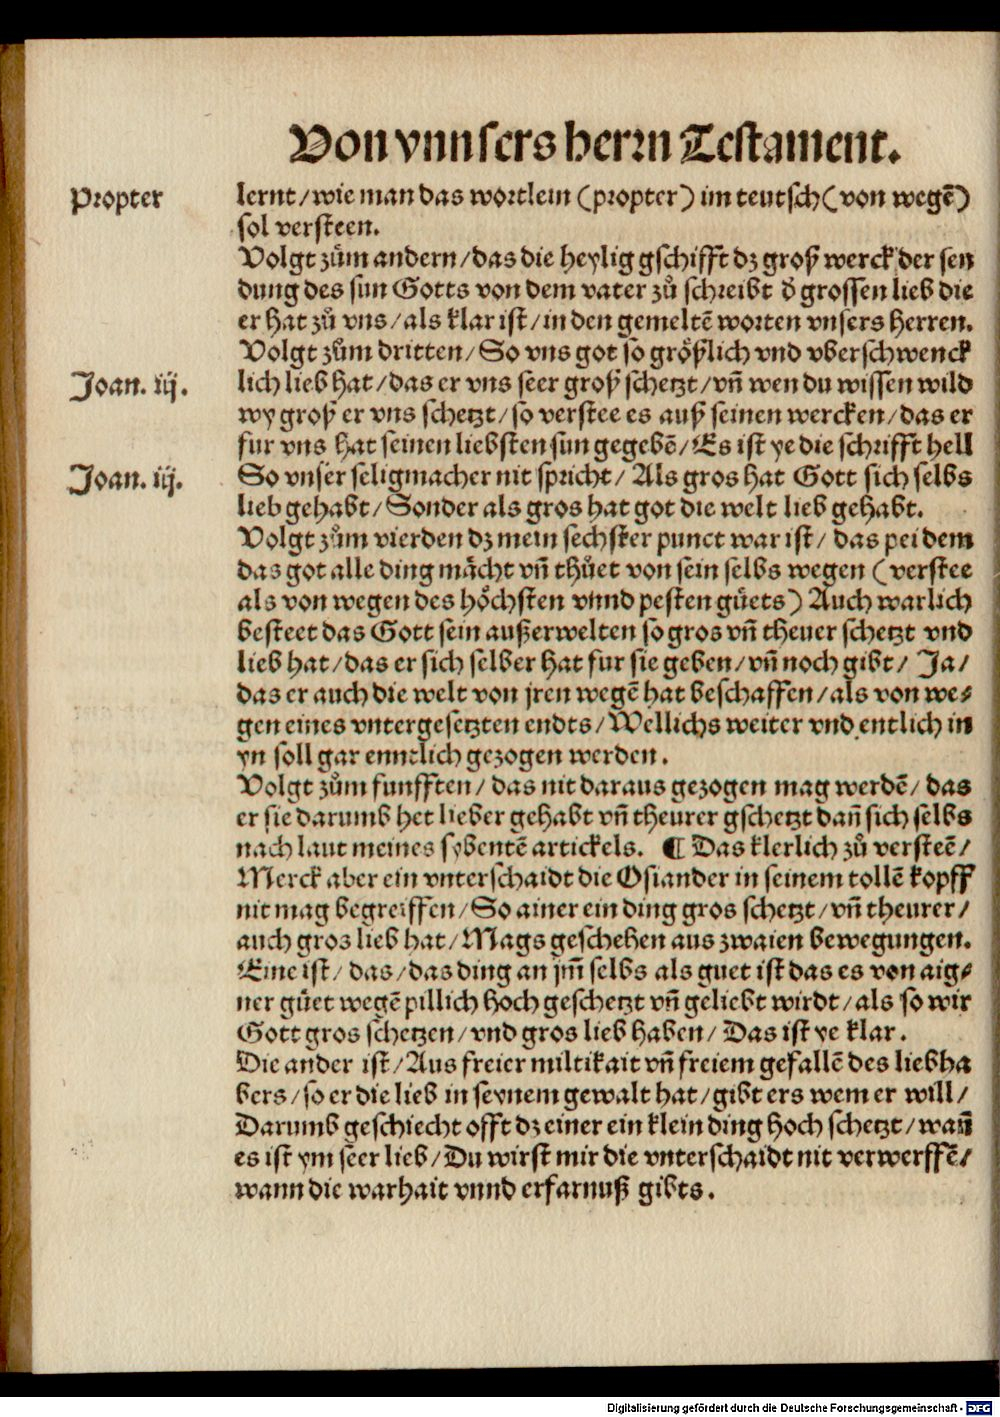 Von vnnsers herrn Testament.
Propter
lernt/wie man das wortlein (propter) im teutsch (von wegē)
sol versteen.
Volgt zům andern/das die heylig gschifft dz groß werck der sen
dung des sun Gotts von dem vater zů schreibt ď grossen lieb die
er hat zů vns/als klar ist/in den gemeltē worten vnsers herren.
Volgt zům dritten/So vns got so größlich vnd vberschwenck
Joan. iij.
lich lieb hat/das er vns seer groß schetzt/vñ wen du wissen wild
wy groß er vns schetzt/so verstee es auß seinen wercken/das er
fur vns hat seinen liebsten sun gegebē/Es ist ye die schrifft hell
Joan. iij.
So vnser seligmacher nit spricht/Als gros hat Gott sich selbs
lieb gehabt/Sonder als gros hat got die welt lieb gehabt.
Volgt zům vierden dz mein sechster punct war ist/das pei dem
das got alle ding mācht vñ thůet von sein selbs wegen (verstee
als von wegen des höchsten vnnd pesten gůets) Auch warlich
besteet das Gott sein außerwelten so gros vñ theuer schetzt vnd
lieb hat/das er sich selber hat fur sie geben/vñ noch gibt/Ja/
das er auch die welt von jren wegē hat beschaffen/als von we⸗
gen eines vntergesetzten endts/Wellichs weiter vnd entlich in
yn soll gar enntlich gezogen werden.
Volgt zům funfften/das nit daraus gezogen mag werdē/das
er sie darumb het lieber gehabt vñ theurer gschetzt dañ sich selbs
nach laut meines sybentē artickels. ¶ Das klerlich zů versteē/
Merck aber ein vnterschaidt die Osiander in seinem tollē kopff
nit mag begreiffen/So ainer ein ding gros schetzt/vñ theurer/
auch gros lieb hat/Mags geschehen aus zwaien bewegungen.
Eine ist/das/das ding an jm̃ selbs als guet ist das es von aig⸗
ner gůet wegē pillich hoch geschetzt vñ geliebt wirdt/als so wir
Gott gros schetzen/vnd gros lieb haben/Das ist ye klar.
Die ander ist/Aus freier miltikait vñ freiem gefallē des liebha
bers/so er die lieb in seynem gewalt hat/gibt ers wem er will/
Darumb geschiecht offt dz einer ein klein ding hoch schetzt/wañ
es ist ym seer lieb/Du wirst mir die vnterschaidt nit verwerffē/
wann die warhait vnnd erfarnuß gibts.
Digitalisierung gefördert durch die Deutsche Forschungsgemeinschaft - DFG